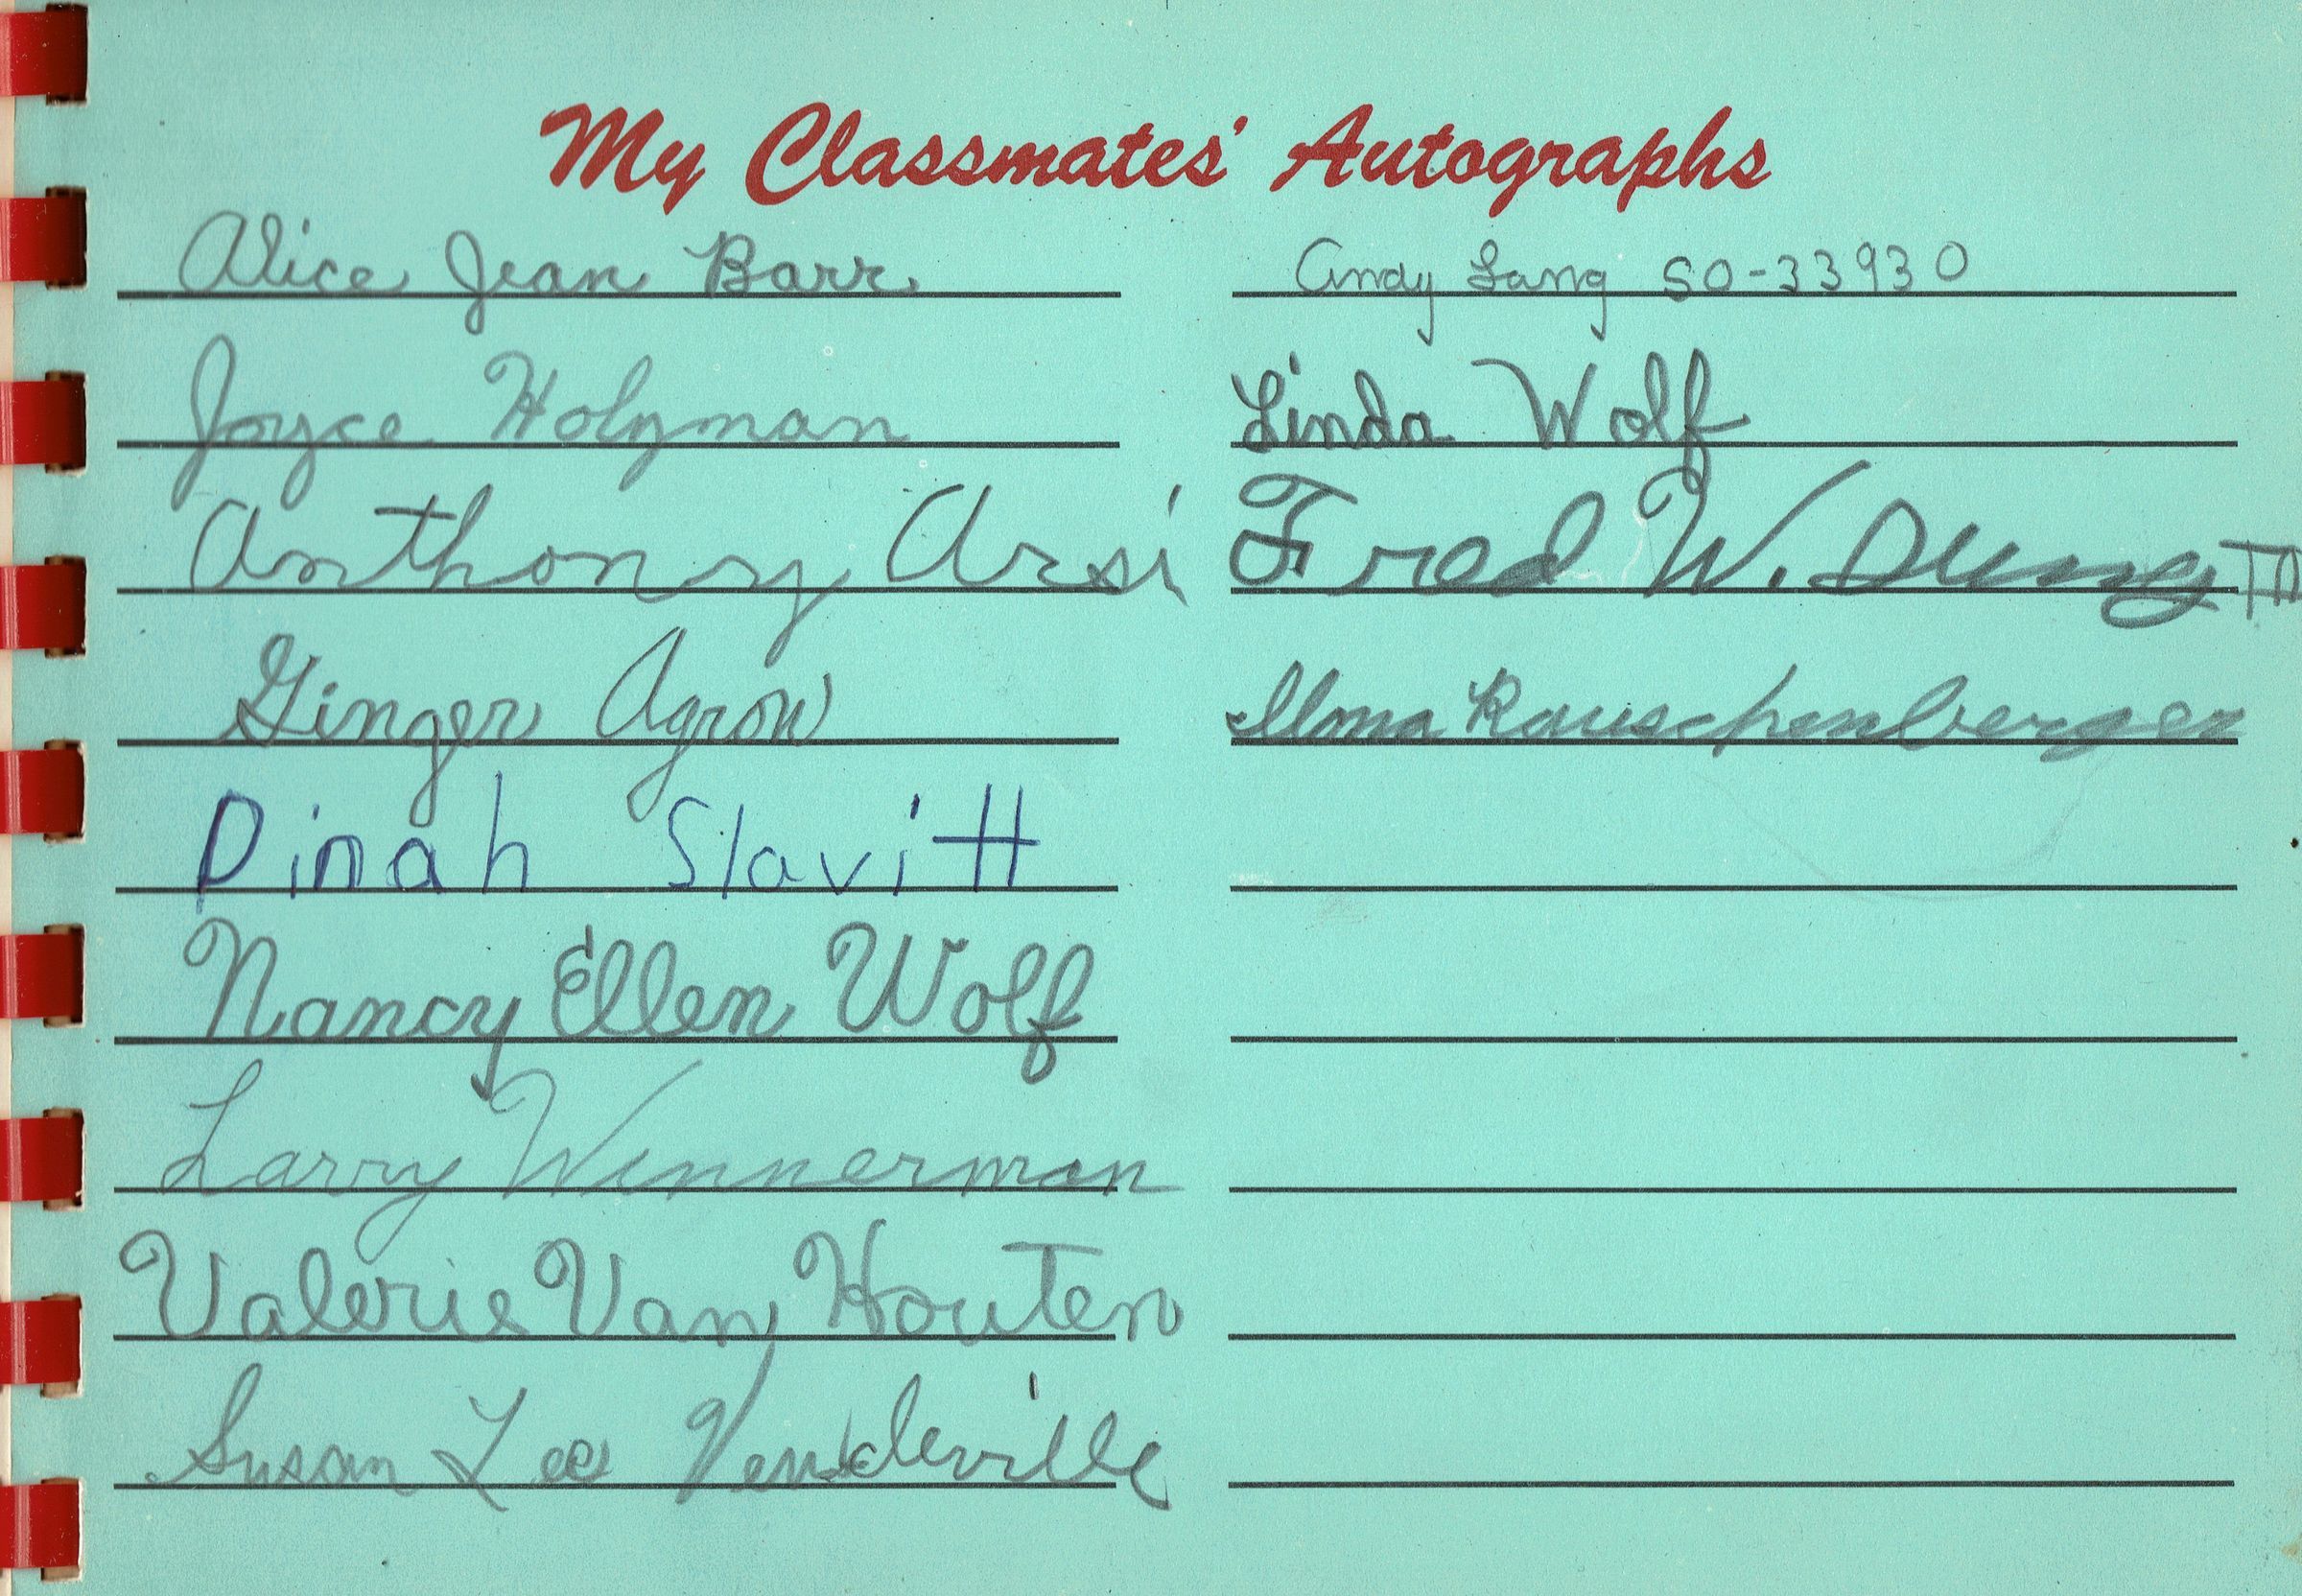 My Classmates' Autographs
Alice Jean Barr
Joyce Holyman
Anthony Arsi
Ginger Agron
Dinah Slavitt
Nancy Ellen Wolf
Larry Winnerman
Valerie Van Houten
Susan Lee Vendeville
Andy Lang SO-33930
Linda Wolf
Fred W. Dung III
Ilona Rauschenberger